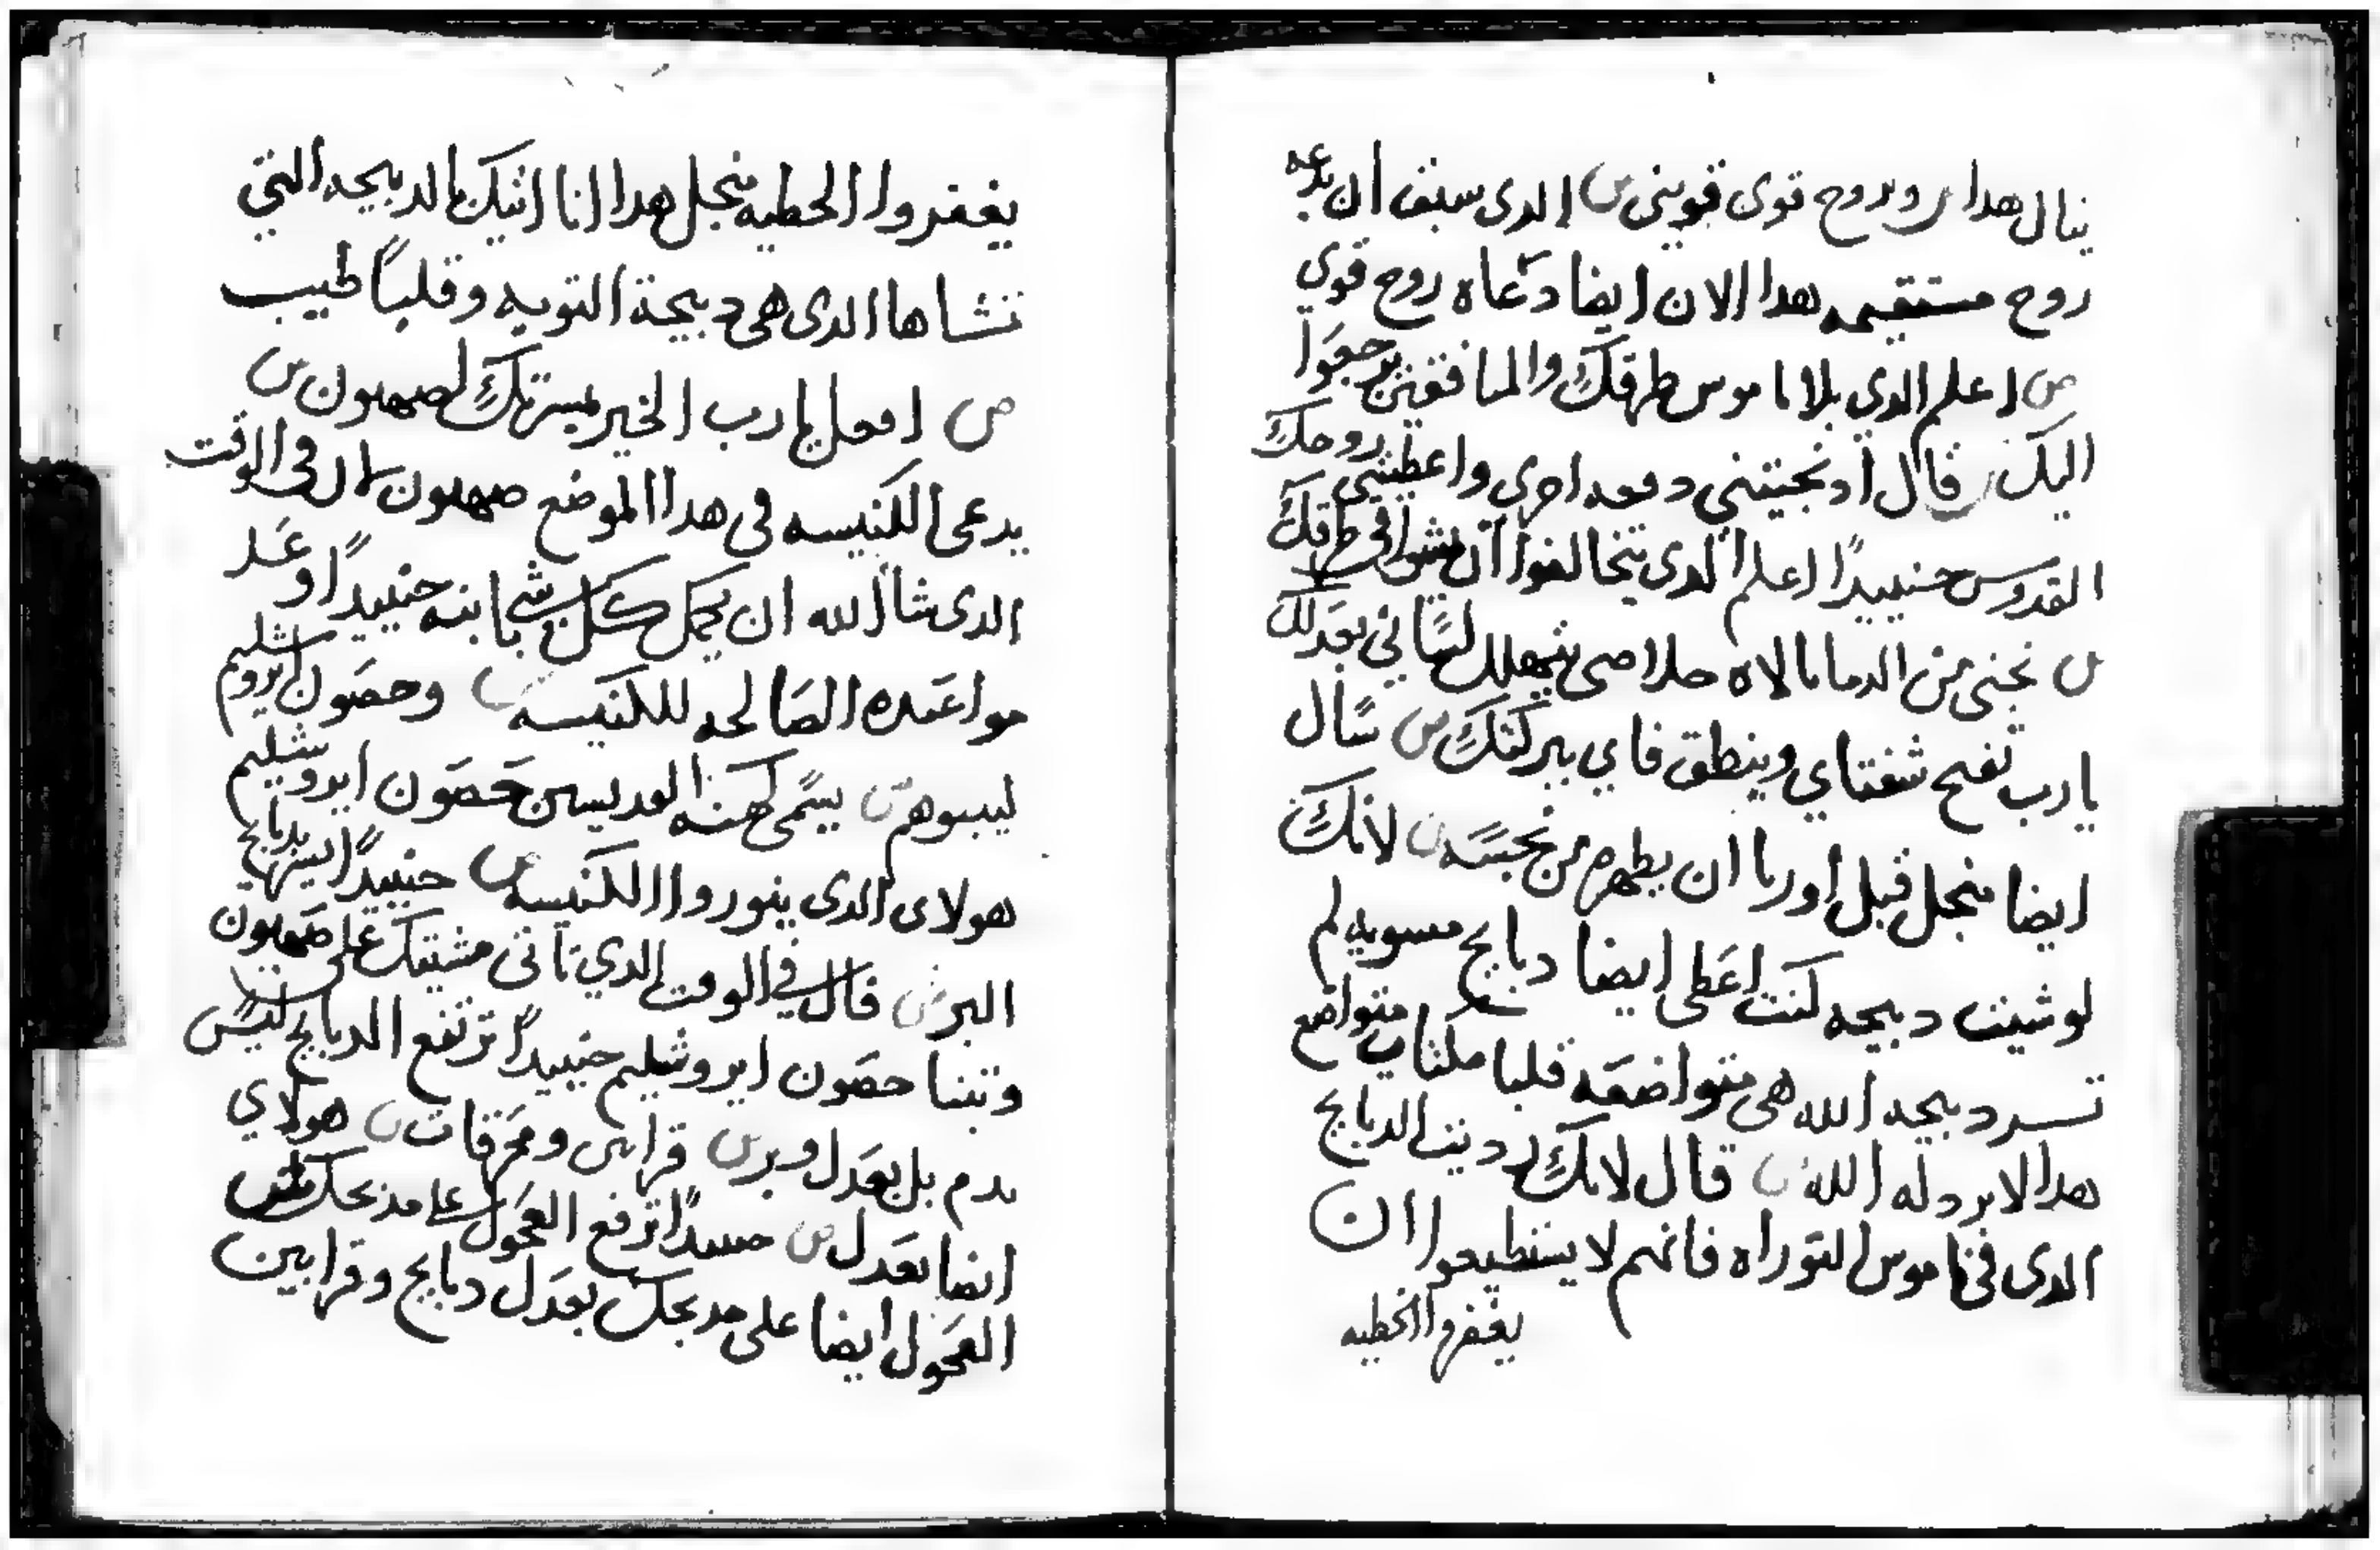 ينال هدا س وبروح قوى قوينى س الدى سبق ان يدعيه
روح مستقيمه هدا الان ايضا دعاه روح قوي
ص اعلم الدي بلا ناموس طرقك والمنافقين يرجعوا
اليك س قال اد نجيتني دفعه اخرى واعطيتني روحك
القدوس حنييدًا اعلم الدى يتخالفوا ان يمشوا في طرقك
س نجنى من الدما يا الاه خلاصى يتهلل لسانى بعدلك
يارب تفتح شفتاي وينطق فاي ببركتك س سال
ايضا منجل قبل اوريا ان يطهره من نجسه ن لانك
لو شيت دبيحه كنت اعطى ايضا دبايح مسويه لم
تسر دبيحه الله هى متواضعه قلبا ملتا متواضع
هدا لا يردله الله ن قال لانك رديت الدبايح
الدى فى ناموس التوراه فانهم لا يستطيعوا ان
يغفروا الخطيه
يغفروا الخطيه منجل هدا انا اتيك بالدبيحه التي
تشاها الدى هى دبيحة التوبه وقلبًا طيب
ص افعل يارب الخير بمسرتك لصهيون س
يدعى الكنيسه فى هدا الموضع صهيون لان فى الوقت
الدى شا الله ان يجمل كل شي بابنه حنييدًا وعد
مواعده الصالحه للكنيسه وحصون ايروشليم
ليبنوهم س يسمى كهنه القديسين حصون ايروشليم
هولاى الدى ينوروا الكنيسه ص حنييدًا ابتها بدبايح
البر س قال في الوقت الدي تاتى مشيتك على صهيون
وتبنا حصون ايروشليم حنييدًا ترتفع الدبايح ليس
بدم بل بعدل وبر س قرابين ومحرقات ن هولاي
ايضا بعدل ص حنييدًا ترفع العجول على مذبحك
العجول ايضا على مدبحك بعدل دبايح وقرابين